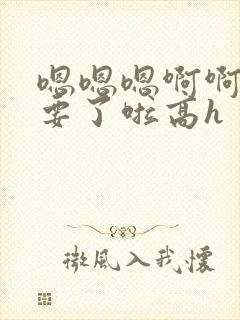 嗯嗯嗯啊啊
要了啦高h
微風入我懷